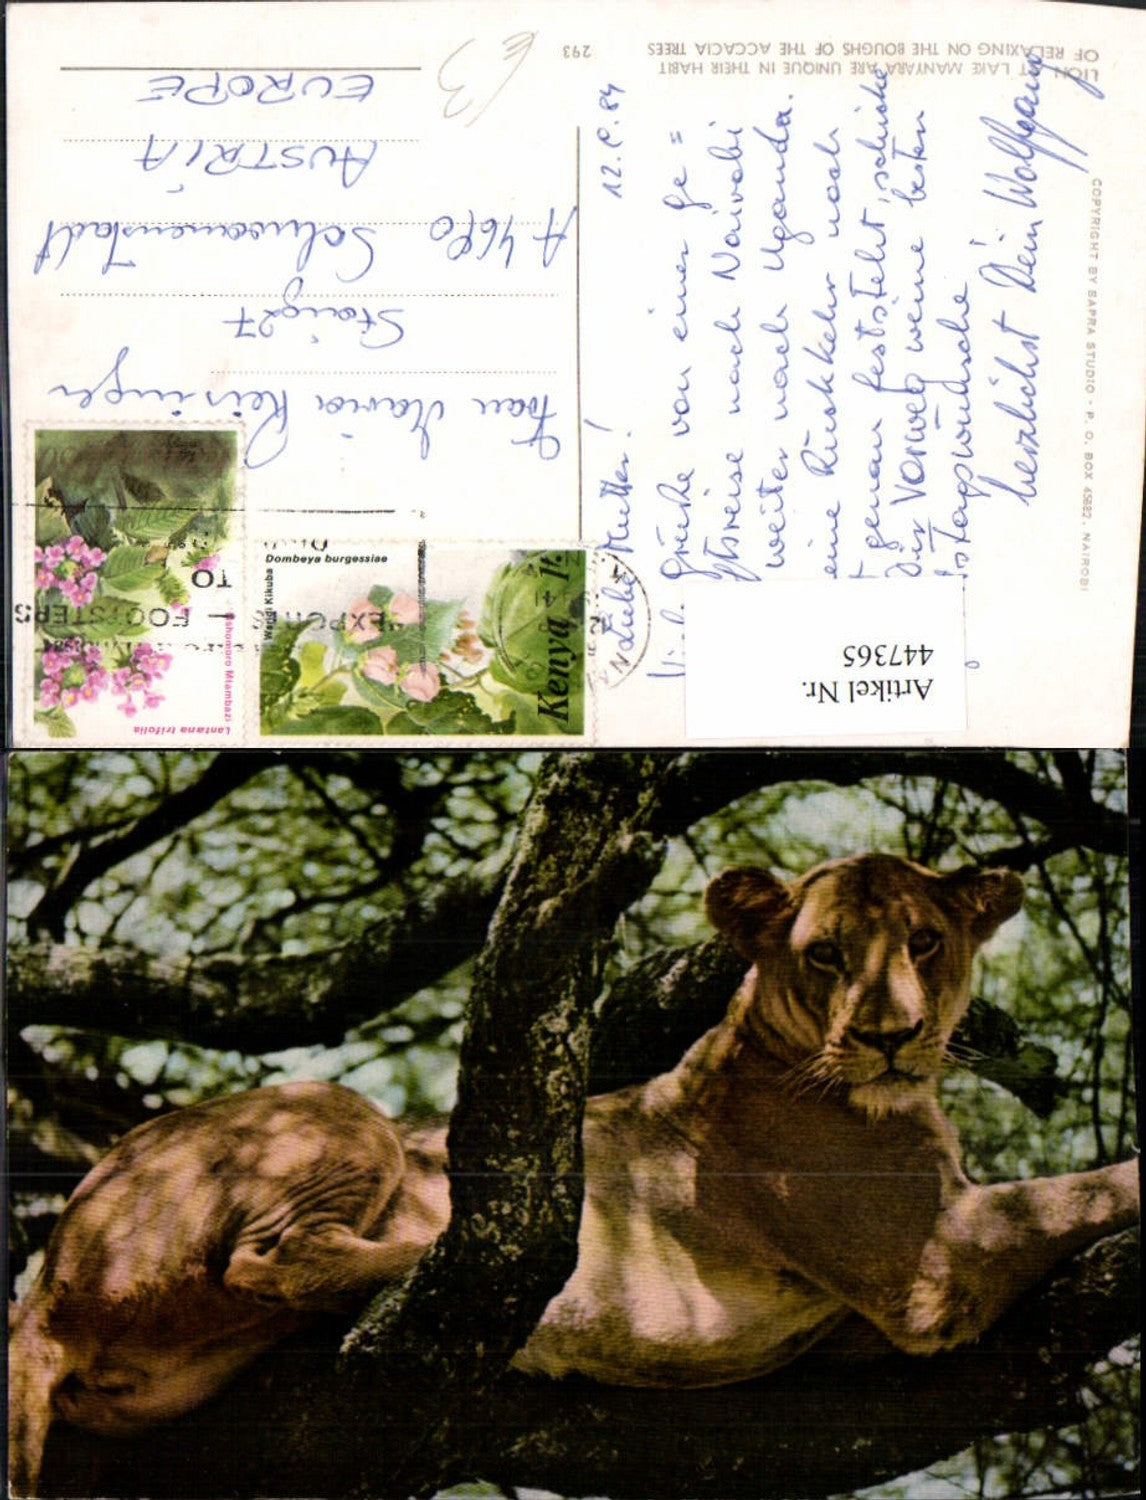 LION AT LAKE MANYARA ARE UNIQUE IN THEIR HABIT
OF RELAXING ON THE BOUGHS OF THE ACCACIA TREES
293
COPYRIGHT BY SAPRA STUDIO - P. O. BOX 45882, NAIROBI
Liebe Mutter!
Grüße von einer Ge=
schäftsreise nach Nairobi
weiter nach Uganda.
eine Rückkehr noch
genau feststeht, schicke
Dir vorweg meine besten
wünsche
herzlichst Dein Wolfgang
Frau Maria Reisinger
Staig 27
A 4690 Schwanenstadt
AUSTRIA
EUROPE
€3
Kenya 1/-
Dombeya burgessiae
Lantana trifolia
TO
FOOTSTEPS
Artikel Nr.
447365